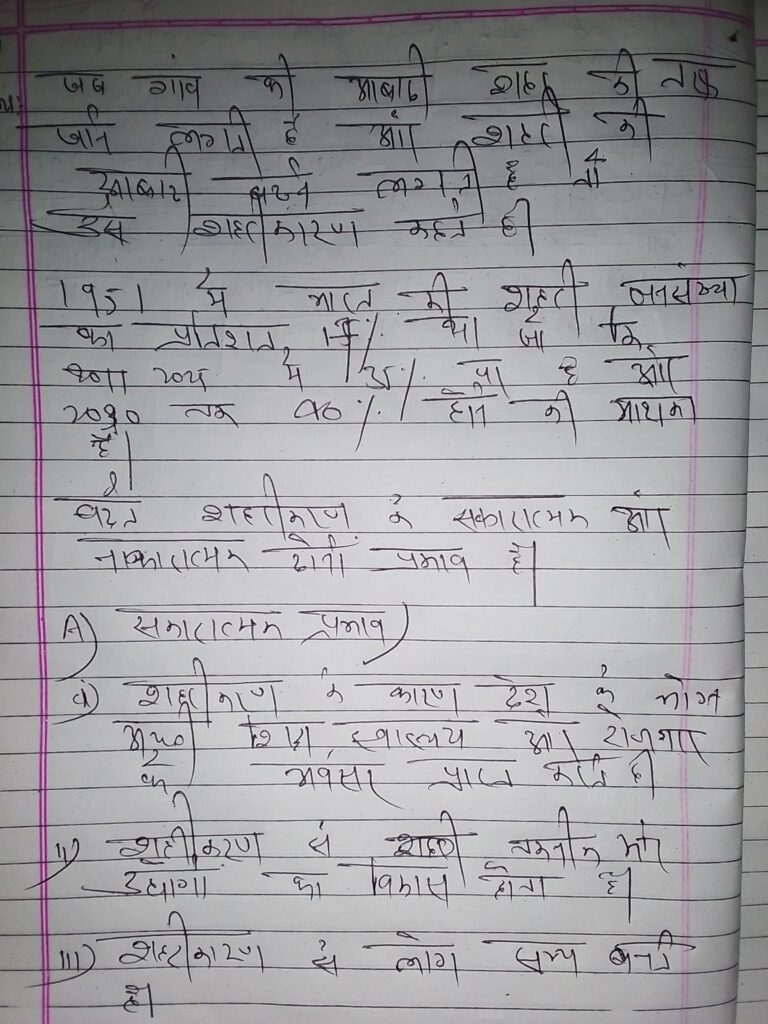 जब गांव की आबादी शहर की तरफ
जाने लगती है और शहर की
आबादी बढ़ने लगती है तो
उसे शहरीकरण कहते है।
1951 में भारत की शहरी जनसंख्या
का प्रतिशत, % था जो कि
में 35% था है और
तक ४०% होने की
है।
बढ़ते शहरीकरण के सकारात्मक और
नाकारात्मक दोनो प्रभाव है।
A) सकारात्मक प्रभाव
i) शहरीकरण के कारण देश के लोग
शिक्षा, स्वास्थ्य और रोजगार
के अवसर प्राप्त करते है।
ii) शहरीकरण से तकनीक और
उद्योगो का विकास होता है।
iii) शहरीकरण से लोग सभ्य बनते
है।